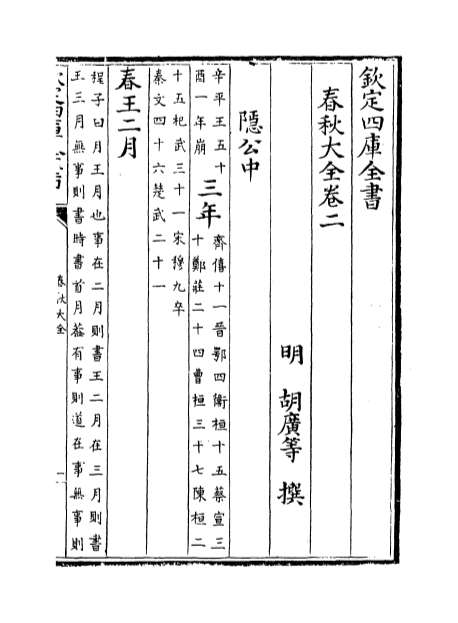 欽定四庫全書
春秋大全卷二
明 胡廣等 撰
隱公中
辛平王五十
酉一年崩
三年
齊僖十一晉鄂四衛桓十五蔡宣三
十鄭莊二十四曹桓三十七陳桓二
十五杞武三十一宋穆九卒
秦文四十六楚武二十一
春王二月
程子曰月王月也事在二月則書王二月在三月則書
王三月無事則書時書首月蓋有事則道在事無事則
春秋大全
一